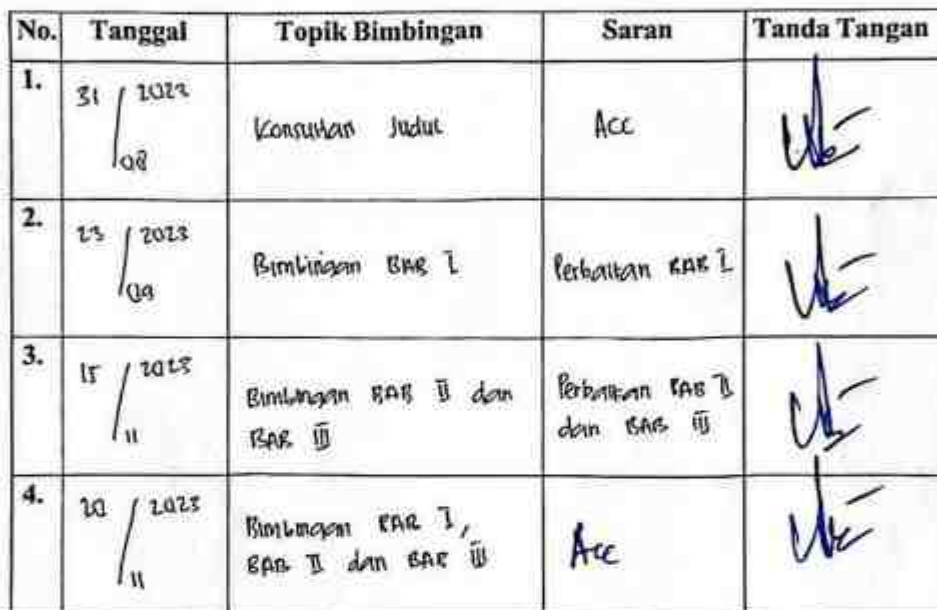 No. Tanggal Topik Bimbingan Saran Tanda Tangan
1. 31/08 2022 Konsultan Judul Acc
2. 23/09 2023 Bimbingan BAB I Perbaikan BAB I
3. 15/11 2023 Bimbingan BAB II dan Perbaikan BAB II
BAB III dan BAB III
4. 20/11 2023 Bimbingan BAB I, Acc
BAB II dan BAB III